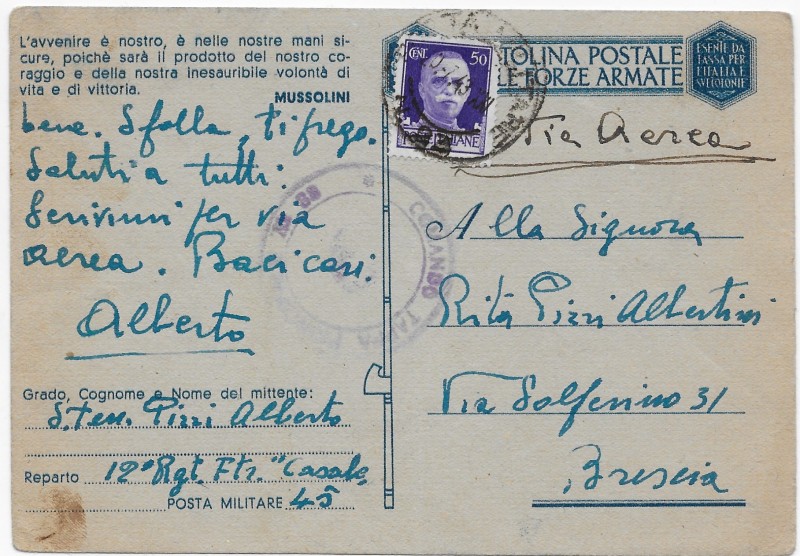 L'avvenire è nostro, è nelle nostre mani si-
cure, poichè sarà il prodotto del nostro co-
raggio e della nostra inesauribile volontà di
vita e di vittoria.
MUSSOLINI
bene. Sfolla, ti prego.
Saluti a tutti.
Scrivimi per via
aerea. Baci cari.
Alberto
Grado, Cognome e Nome del mittente:
S. Ten. Pizzi Alberto
Reparto 12º Rgt. Ftr. "Casale"
POSTA MILITARE 45
CENT. 50
COMANDO TAPPA
CARTOLINA POSTALE
FORZE ARMATE
ESENTE DA
TASSA PER
L'ITALIA E
Via Aerea
Alla Signora
Rita Pizzi Albertini
Via Solferino 31
Brescia